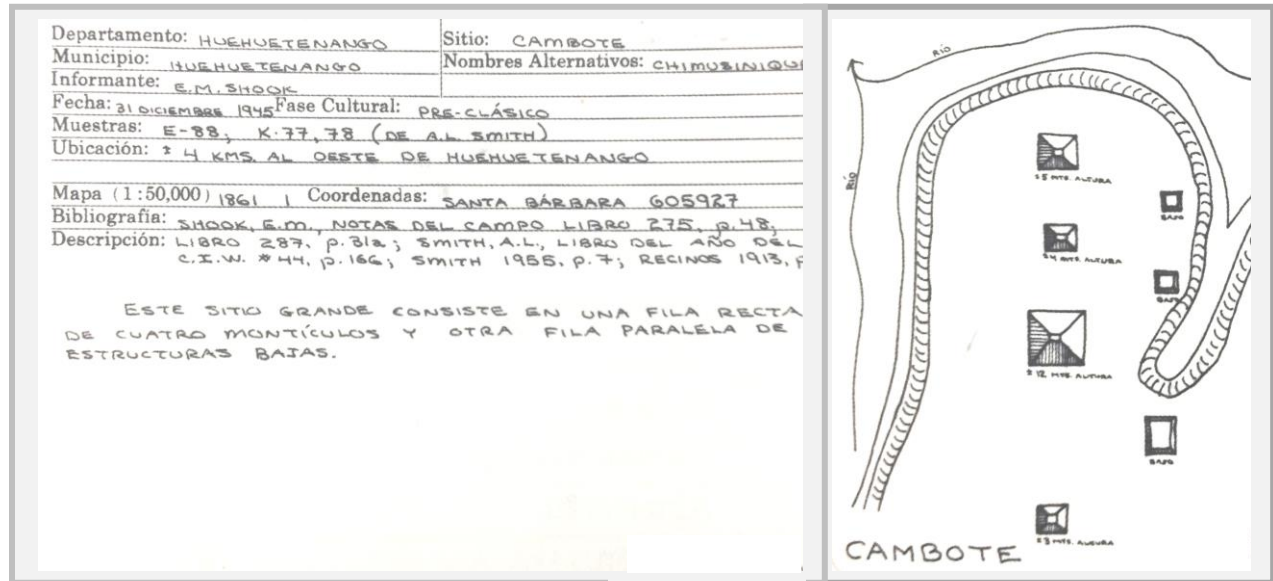 Departamento: HUEHUETENANGO
Sitio: CAMBOTE
Municipio: HUEHUETENANGO
Nombres Alternativos: CHIMUSINIQUE
Informante: E.M. SHOOK
Fecha: 31 DICIEMBRE 1945 Fase Cultural: PRE-CLÁSICO
Muestras: E-88; K-77, 78 (DE A.L. SMITH)
Ubicación: ± 4 KMS. AL OESTE DE HUEHUETENANGO
Mapa (1:50,000) 1861 I Coordenadas: SANTA BÁRBARA 605927
Bibliografía: SHOOK, E.M., NOTAS DEL CAMPO LIBRO 275, p.48;
Descripción: LIBRO 287, p.31a; SMITH, A.L., LIBRO DEL AÑO DEL
C.I.W. #44, p.166; SMITH 1955, p.7; RECINOS 1913, p
ESTE SITIO GRANDE CONSISTE EN UNA FILA RECTA
DE CUATRO MONTÍCULOS Y OTRA FILA PARALELA DE
ESTRUCTURAS BAJAS.
RÍO
RÍO
± 5 MTS. ALTURA
BAJO
± 4 MTS. ALTURA
BAJO
± 12 MTS. ALTURA
BAJO
± 3 MTS. ALTURA
CAMBOTE